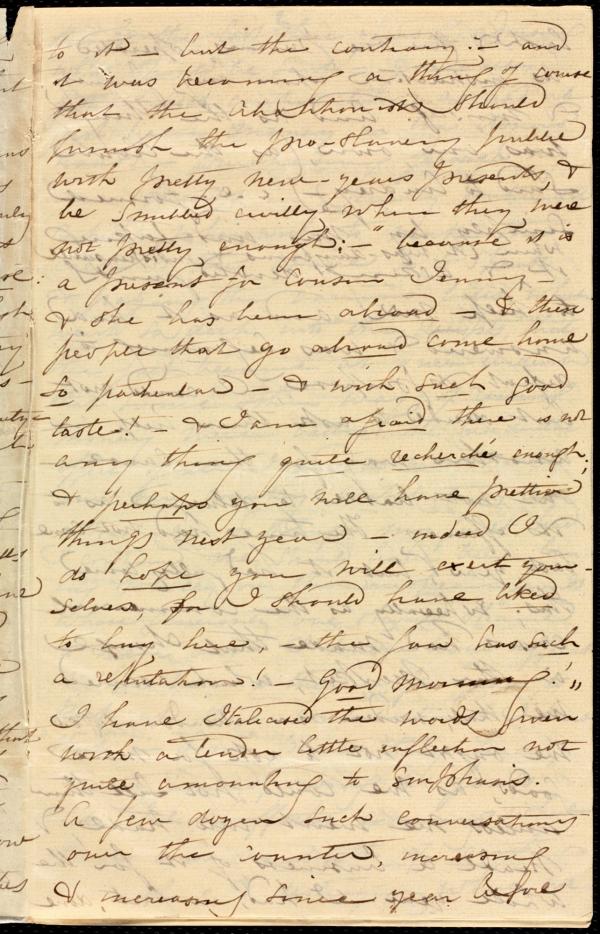 to it – but the contrary:– and
it was becoming a thing of course
that the abolitionists should
furnish the pro-slavery public
with pretty new-years presents, &
be snubbed civilly when they were
not pretty enough:– "because it is
a present for cousin Jenny –
& she has been abroad – & these
people that go abroad come home
so particular – & with such good
taste! – & I am afraid there is not
any thing quite recherché enough:
& perhaps you will have prettier
things next year – indeed I
do hope you will exert your-
selves, for I should have liked
to buy here, – the fair has such
a reputation! – Good morning!"
I have Italicised the words given
with a tender little inflection not
quite amounting to emphasis.
A few dozen such conversations
over the counter, increasing
& increasing since year before